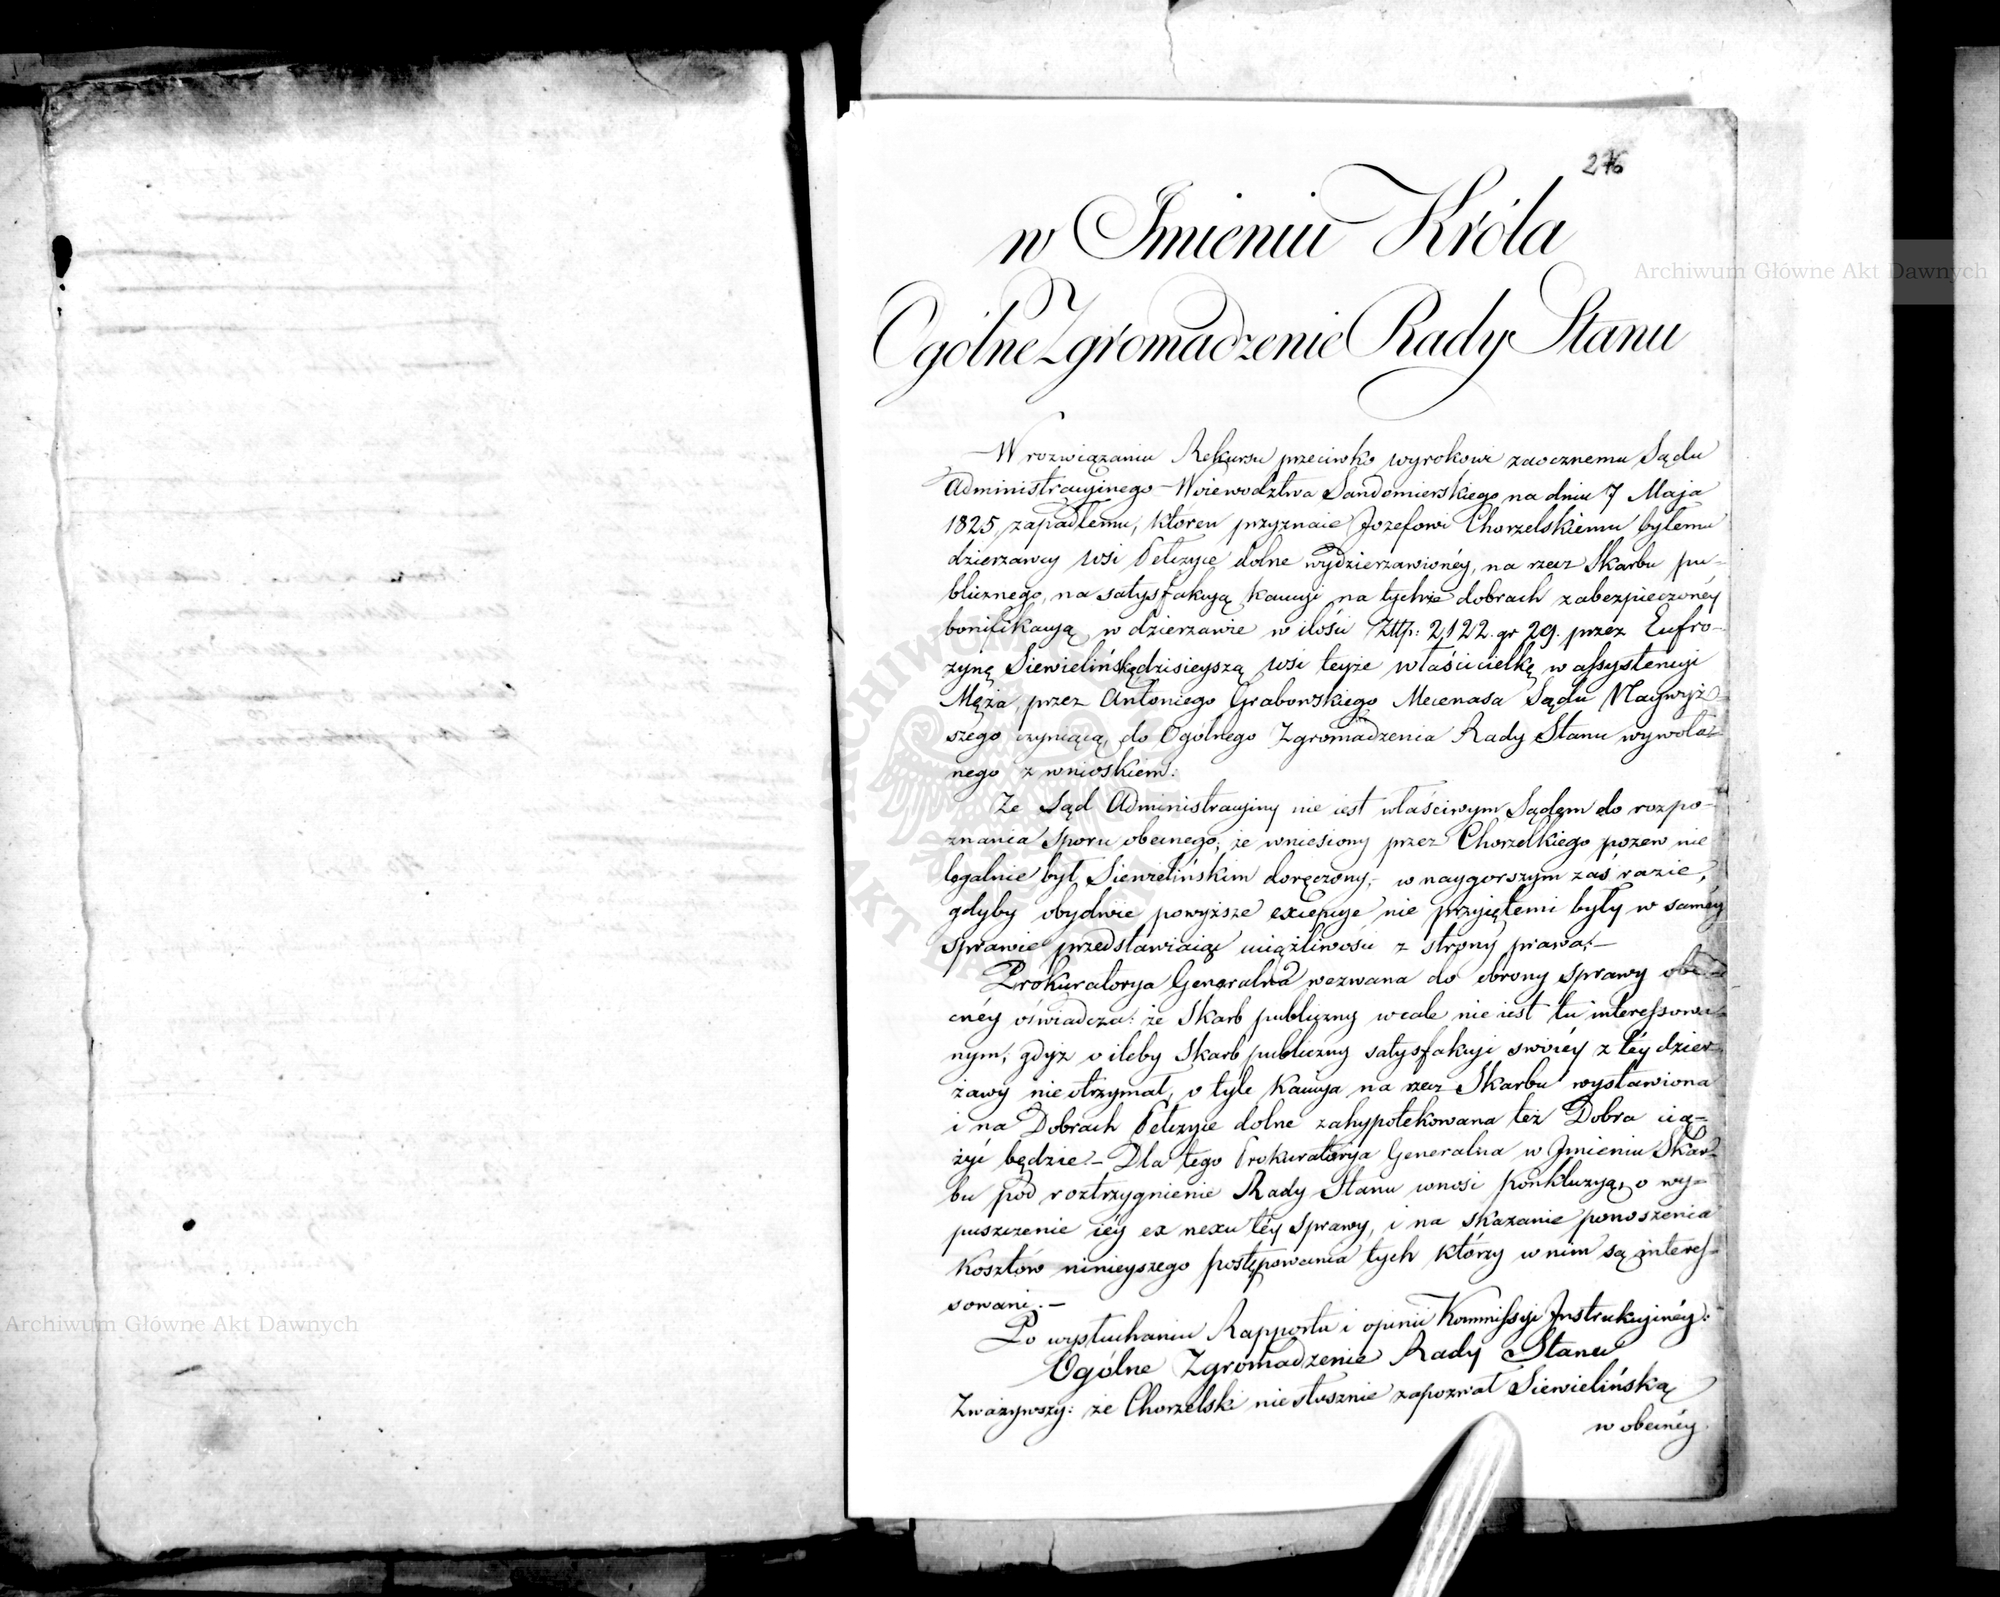 276
w Imieniu Króla
Ogólne Zgromadzenie Rady Stanu
W rozwiązaniu Rekursu przeciwko wyrokowi zaocznemu Sądu
Administracyinego Woiewodztwa Sandomierskiego na dniu 7 Maja
1825 zapadłemu, ktoren przyznaie Jozefowi Chorzelskiemu byłemu
dzierzawcy wsi Pełczyce dolne wydzierzawionéy, na rzecz Skarbu pu-
blicznego, na satysfakcyą kaucyi na tychże dobrach zabezpieczonéy
bonifikacyą w dzierzawie w ilości Złtp: 2,122. gr 29. przez Eufro-
zynę Siewielińską dzisieyszą wsi teyże właścicielkę w assystencyi
Męża, przez Antoniego Grabowskiego Mecenasa Sądu Naywyż-
szego czyniącą, do Ogólnego Zgromadzenia Rady Stanu wywoła-
nego z wnioskiem:
Ze Sąd Administracyiny nie iest właściwym Sądem do rozpo-
znania sporu obecnego; że wniesiony przez Chorzelkiego pozew nie
legalnie był Siewielińskim doręczony; w naygorszym zaś razie,
gdyby obydwie powyższe excepcye nie przyiętemi były w saméy
sprawie przedstawiaią uciążliwości z strony prawa.—
Prokuratorya Generalna wezwana do obrony sprawy obe-
cnéy oświadcza: że Skarb publiczny wcale nie iest tu interessowa-
nym; gdyż o ileby Skarb publiczny satysfakcyi swoiéy z téy dzier
żawy nie otrzymał, o tyle Kaucya na rzecz Skarbu wystawiona
i na Dobrach Pełczyce dolne zahypotekowana też Dobra cią-
żyć będzie.— Dla tego Prokuratorya Generalna w Imieniu Skar-
bu pod roztrzygnienie Rady Stanu wnosi konkluzyą, o wy-
puszczenie iéy ex nexu téy sprawy, i na skazanie ponoszenia
Kosztów ninieyszego postępowania tych którzy w nim są interes-
sowani.—
Po wysłuchaniu Rapportu i opinii Kommissyi Instrukcyinéy:
Ogólne Zgromadzenie Rady Stanu
Zważywszy: że Chorzelski niesłusznie zapozwał Siewielińską
w obecnéy
Archiwum Główne Akt Dawnych
Archiwum Główne Akt Dawnych